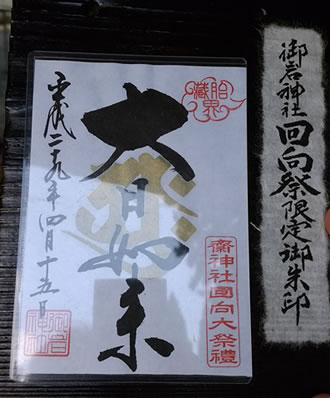 御岩神社回向祭限定御朱印
胎藏界
大日如来
齋神社回向大祭禮
平成二十九年四月十五日
御岩神社